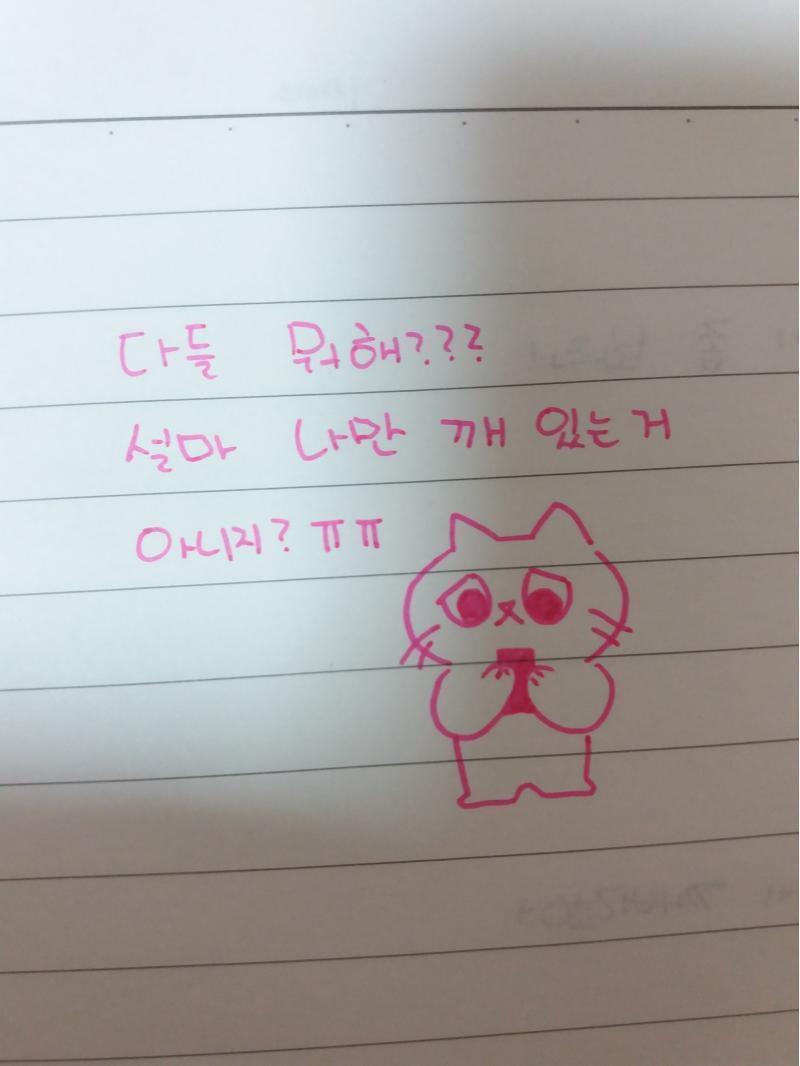 다들 뭐해???
설마 나만 깨 있는거
아니지? ㅠㅠ